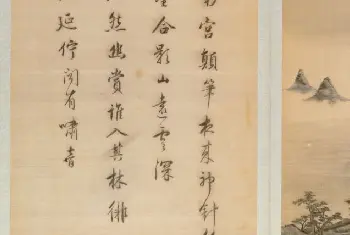 宮顛筆夜來神針
合影山遠雲深
然幽賞誰入其林徘
延佇聞有嘯音